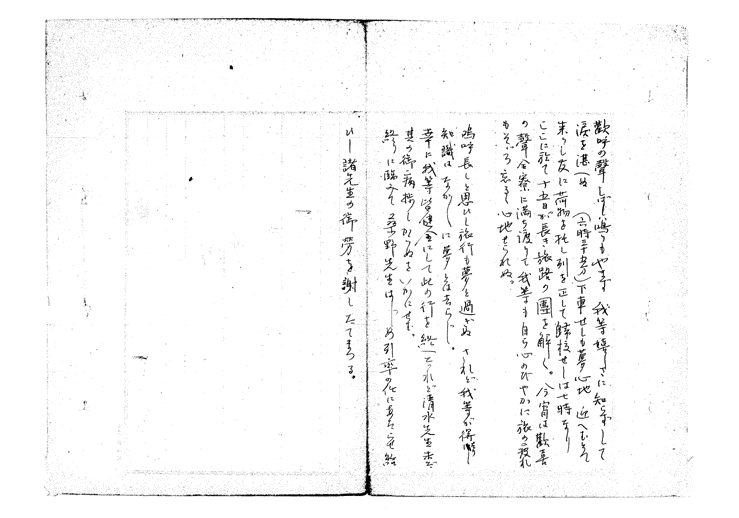 歓呼の聲しばし鳴りもやまず 我等嬉しさに知らずして
涙を湛へぬ (六時三十五分)下車せしも夢心地 近へむとて
来りし友に荷物を托し列を正して歸校せしは七時なり
ここに於て十五日が長き旅路の團を解く。今宵は歓喜
の聲全寮に満ち渡りて我等も自ら心のびやかに旅の疲れ
もそゞろ忘るゝ心地せられぬ。
嗚呼長しと思ひし旅行も夢と過ぎぬ されど我等が得
知識は なが に夢とは去らじ。
幸に我等皆健全にして此の行を終へつれど清水先生
其の御病 しからぬをいかにせむ。
終りに臨みて桑野先生はじめ引率の任にあたらせ給
ひし諸先生の御勞を謝したてまつる。